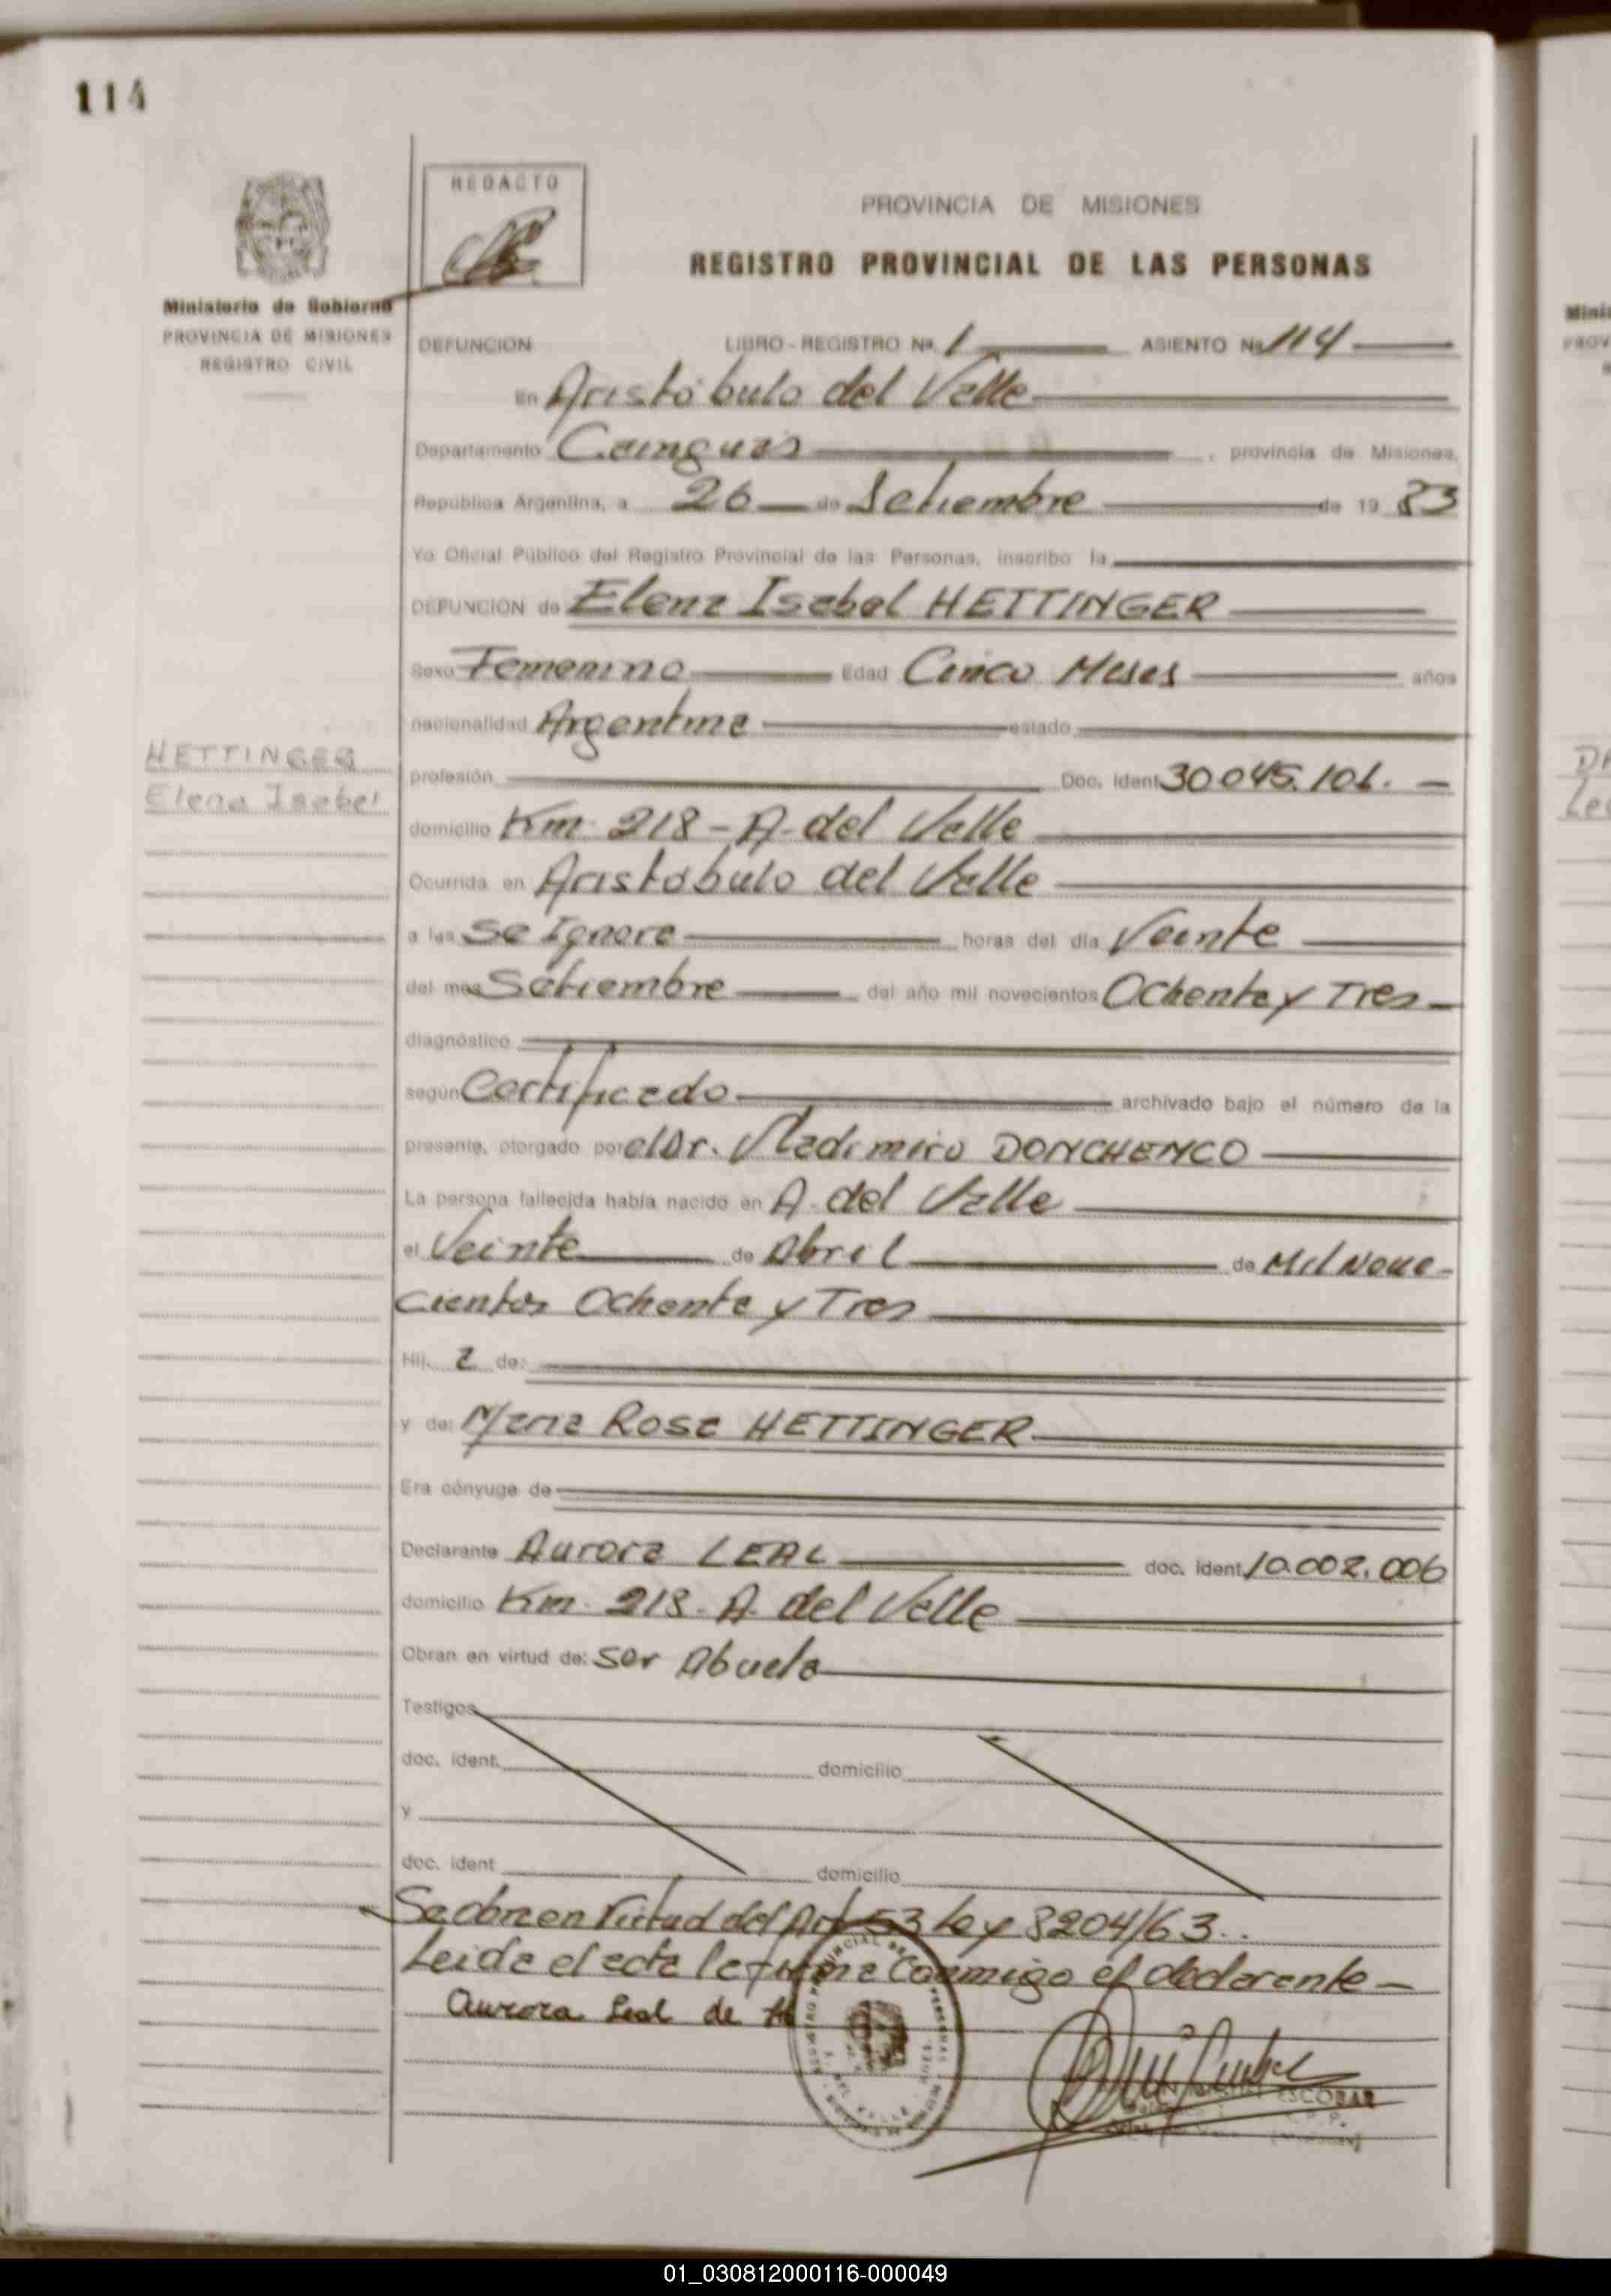 114
REDACTO
PROVINCIA DE MISIONES
REGISTRO PROVINCIAL DE LAS PERSONAS
Ministerio de Gobierno
PROVINCIA DE MISIONES
REGISTRO CIVIL
DEFUNCION LIBRO-REGISTRO Nº 1 ASIENTO Nº 114
En Aristóbulo del Valle
Departamento Cainguas, provincia de Misiones,
República Argentina, a 26 de Setiembre de 1983
Yo Oficial Público del Registro Provincial de las Personas, inscribo la
DEFUNCION de Elena Isabel HETTINGER
Sexo Femenino Edad Cinco Meses años
nacionalidad Argentina estado
HETTINGER
Elena Isabel
profesión Doc. Ident 30.045.101.-
domicilio Km. 218 - A. del Valle
Ocurrida en Aristobulo del Valle
a las Se Ignora horas del día Veinte
del mes Setiembre del año mil novecientos Ochenta y Tres
diagnóstico
según Certificado archivado bajo el número de la
presente, otorgado por el Dr. Vladimiro DONCHENCO
La persona fallecida había nacido en A. del Valle
el Veinte de Abril de Mil Nove-
cientos Ochenta y Tres
Hij. a de:
y de: Maria Rosa HETTINGER
Era cónyuge de
Declarante Aurora LEAL doc. ident. 10.002.006
domicilio Km. 218. A. del Valle
Obran en virtud de: Ser Abuela
Testigos
doc. ident. domicilio
y
doc. ident domicilio
Se obra en Virtud del Art 53 Ley 8204/63..
Leida el acta la firma Conmigo el declarante -
Aurora Leal de
ESCOBAR
Mini
PROV
01_030812000116-000049